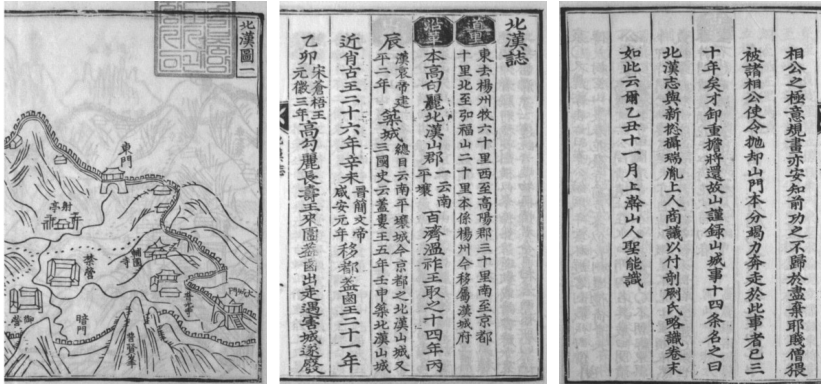 北漢圖一
東門
射亭
禁營
輔國寺
大城門
暗門
普賢峯
北漢誌
道里
東去楊州牧六十里西至高陽郡三十里南至京都
十里北至弥福山二十里本係楊州今移屬漢城府
沿革
本高句麗北漢山郡一云南平壤百濟溫祚王取之十四年丙
辰漢哀帝建平二年築城總目云南平壤城今京都之北漢山城又三國史云蓋婁王五年壬申築北漢山城
近肖古王二十六年辛未晉簡文帝咸安元年移都蓋國王二十一年
乙卯宋蒼梧王元徽三年高勾麗長壽王來圍蓋國出走遇害城遂廢
相公之極意規畫亦安知前功之不歸於盡棄耶賤僧猥
被諸相公使令抛却山門本分竭力奔走於此事者已三
十年矣才卸重擔將還故山謹錄山城事十四条名之曰
北漢志與新捴攝瑞胤上人商議以付剞劂氏略識卷末
如此云爾乙丑十一月上澣山人聖能識